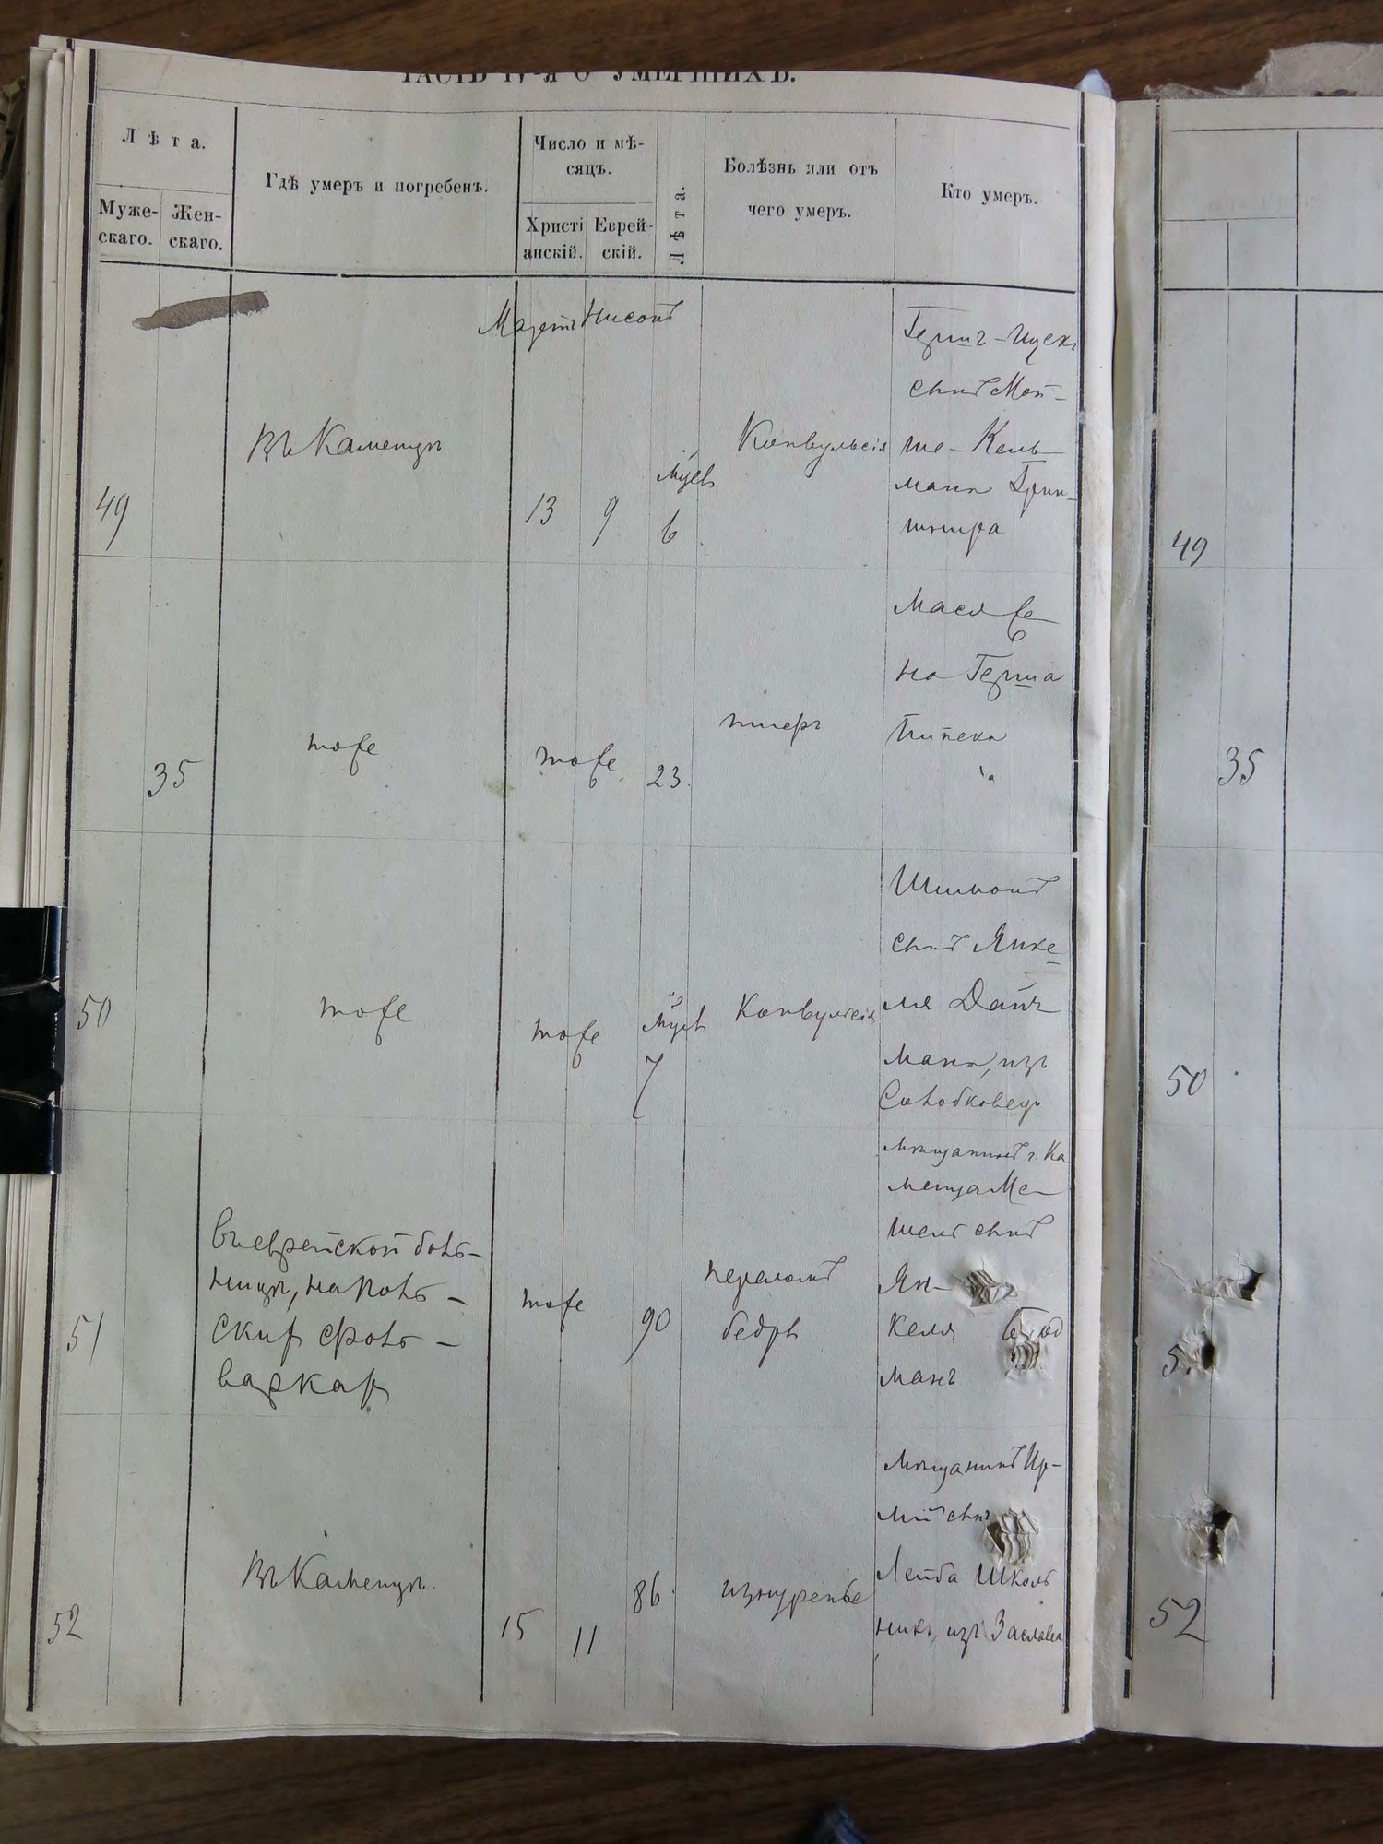 ЧАСТЬ IV-Я О УМЕРШИХЪ.
Лѣта.
Муже-
скаго.
Жен-
скаго.
Гдѣ умеръ и погребенъ.
Число и мѣ-
сяцъ.
Христі
анскій.
Еврей-
скій.
Лѣта.
Болѣзнь или отъ
чего умеръ.
Кто умеръ.
Мартъ Нисонъ
49
Въ Каменцѣ
13
9
6
Конвульсія
Герш-
сынъ Мой-
ше-Кель
мана Грин-
49
35
тоже
тоже
23.
тифъ
Мася же
на Герша
35
50
тоже
тоже
7
Конвульсія
Шимонъ
сынъ Янке
ля
мана, изъ
50
51
въ еврейской боль-
ницѣ, на Поль-
скихъ фоль-
варкахъ
тоже
90
переломъ
бедръ
мѣщанинъ г. Ка
менца Ме
сынъ
Ян-
келя
манъ
5
52
Въ Каменцѣ.
15
11
86
изнуренье
мѣщанинъ
сынъ
Лейба Школь
никъ, изъ Заслава
52